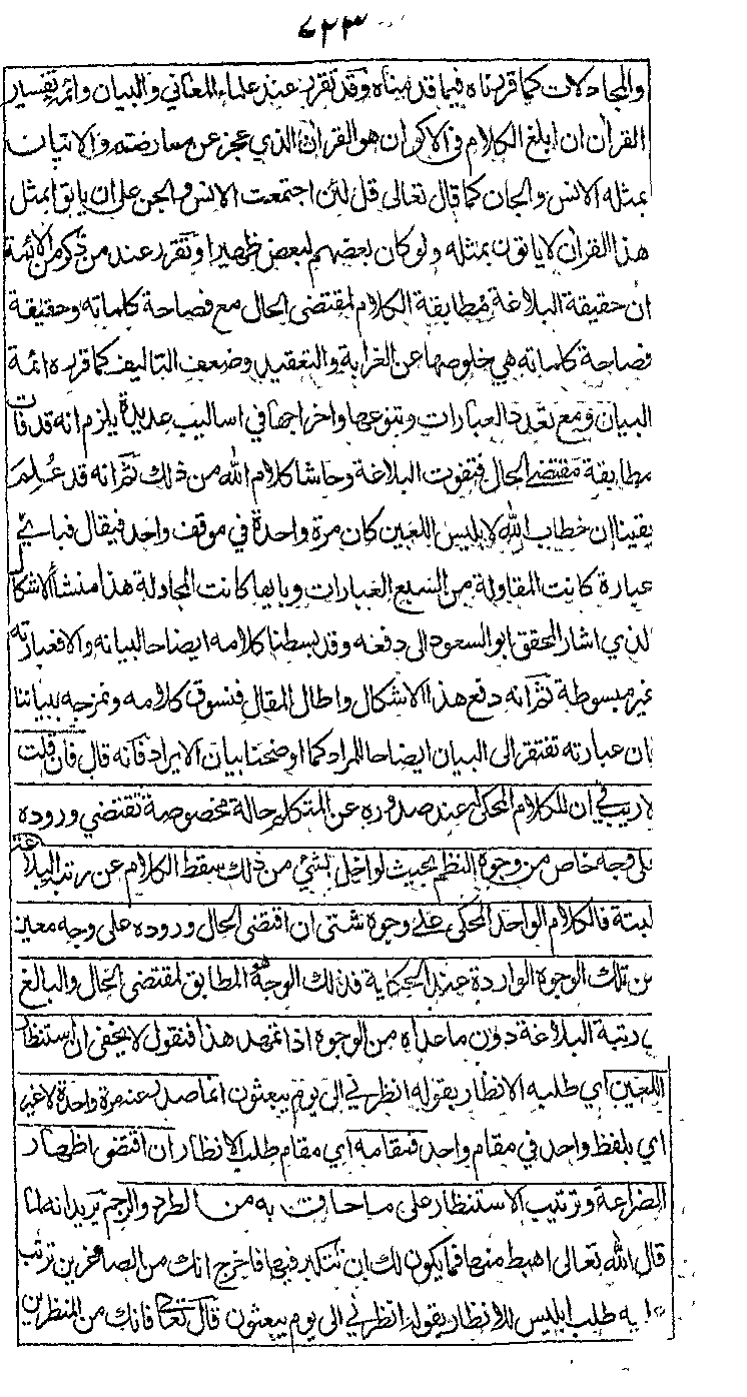 ٤٢٣
والمجادلات كما قررناه فيما قدمناه وقد تقرر عند علماء المعاني والبيان وائمة تفسير
القران ان ابلغ الكلام في الاكوان هو القران الذي عجز عن معارضته والاتيان
بمثله الانس والجان كما قال تعالى قل لئن اجتمعت الانس والجن على ان ياتوا بمثل
هذا القران لا ياتون بمثله ولو كان بعضهم لبعض ظهيرا وتقرر عند من ذكر من الائمة
ان حقيقة البلاغة مطابقة الكلام لمقتضى الحال مع فصاحة كلماته وحقيقة
فصاحة كلماته هي خلوصها عن الغرابة والتعقيد وضعف التاليف كما قرره ائمة
البيان ومع تعدد العبارات وتنوعها واخراجها في اساليب عديدة يلزم انه قد فات
مطابقة مقتضى الحال فتفوت البلاغة وحاشا كلام الله من ذلك ثم انه قد عُلِمَ
يقينا ان خطاب الله لابليس اللعين كان مرة واحدة في موقف واحد فيقال فباي
عبارة كانت المقاولة من السبع العبارات وبايها كانت المجادلة هذا منشأ الاشكال
الذي اشار المحقق ابو السعود الى دفعه وقد بسطنا كلامه ايضاحا لبيانه والا فعبارته
غير مبسوطة ثم انه دفع هذا الاشكال واطال المقال فنسوق كلامه ونمزجه ببياننا
بان عبارته تفتقر الى البيان ايضاحا للمراد كما اوضحنا بيان الايراد فانه قال فان قلت
لا ريب في ان للكلام المحكي عند صدوره عن المتكلم حالة مخصوصة تقتضي وروده
على وجه خاص من وجوه النظم بحيث لو اخل بشيء من ذلك سقط الكلام عن رتبة البلاغة
البتة فالكلام الواحد المحكي على وجوه شتى ان اقتضى الحال وروده على وجه معين
من تلك الوجوه الواردة عند الحكاية فذلك الوجه هو المطابق لمقتضى الحال والبالغ
الى رتبة البلاغة دون ما عداه من الوجوه اذا تمهد هذا فنقول لا يخفى ان استنظار
اللعين اي طلبه الانظار بقوله انظرني الى يوم يبعثون انما صدر عنه مرة واحدة لا غير
اي بلفظ واحد في مقام واحد فمقامه اي مقام طلب الانظار ان اقتضى اظهار
الضراعة وترتيب الاستنظار على ما حاق به من الطرد والرجم يريد انه لما
قال الله تعالى اهبط منها فما يكون لك ان تتكبر فيها فاخرج انك من الصاغرين ترتب
طلب ابليس للانظار بقوله انظرني الى يوم يبعثون قال تعالى فانك من المنظرين